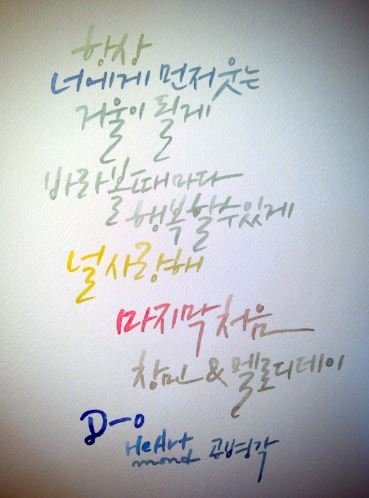 항상
너에게 먼저 웃는
거울이 될게
바라볼때마다
행복할수있게
널 사랑해
마지막 처음
창민 & 멜로디데이
D-0
HeArt
mond 공병각